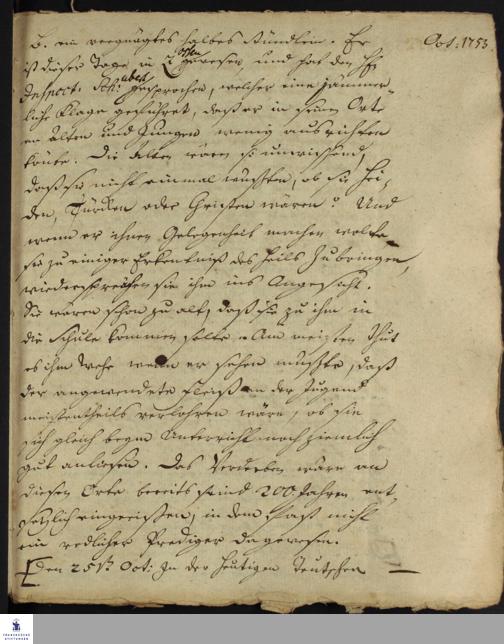 Oct: 1753
B. ein vergnügtes halbes Stündlein. Er
ist dieser Tage in gewesen und hat den H.
Inspect. gesprochen, welcher eine jämmer-
liche Klage geführet, daß er in seinem Orte
an Alten und Jungen wenig ausrichten
könne. Die Alten wären so unwissend,
daß sie nicht einmal wüßten, ob sie Hei-
den, Türcken oder Christen wären? Und
wenn er ihnen Gelegenheit machen wolte
sie zu einiger Erkentniß des Heils zu bringen,
widersprechen sie ihm ins Angesicht.
Sie wären schon zu alt, daß sie zu ihm in
die Schule kommen solten. Am meisten thut
es ihm wehe wenn er sehen müßte, daß
der angewendete Fleiß an der Jugend
meistentheils verlohren wäre, ob sie
sich gleich beym Unterricht noch ziemlich
gut anliesen. Das Verderben wäre an
diesem Orte bereits seind 200 Jahren ent-
setzlich eingerissen, in dem fast nicht
ein redlicher Prediger da gewesen.
Den 25st. Oct: In der heutigen Teutschen
FRANCKESCHE
STIFTUNGEN